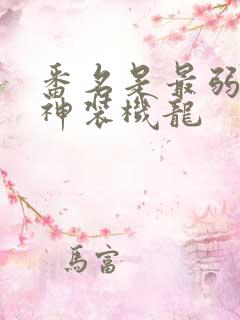 番名是最弱
神装機龍
馬富